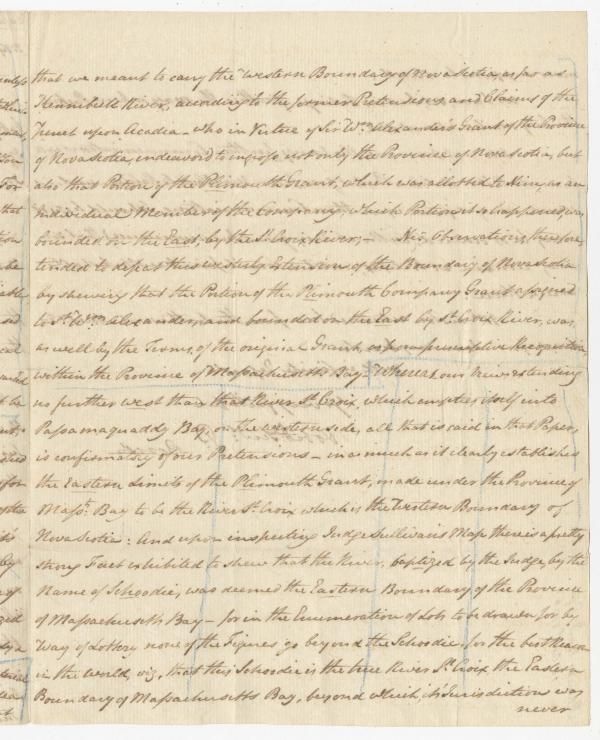 that we meant to carry the Western Boundary of Nova Scotia as far as
Kennibeck River, according to the former Pretensions and Claims of the
French upon Acadia – who in Virtue of Sir Wm. Alexander's Grant of the Province
of Nova Scotia, endeavord to ingross not only the Province of Nova Scotia, but
also that Portion of the Plimouth Grant, which was allotted to Him, as an
individual Member of the Company; which Portion it so happened, was
bounded on the East, by the St. Croix River; – His Observations, therefore
tended to defeat this westerly Extension of the Boundary of Nova Scotia
by shewing that the Portion of the Plimouth Company Grant assigned
to Sr. Wm. Alexander, and bounded on the East by St. Croix River, was
as well by the Terms, of the original Grant, as from Recognition
within the Province of Massachusetts Bay – Whereas, our Views extending
no further west than that River St. Croix, which empties itself into
Passamaquaddy Bay, on the western side, all that is said in that Paper,
is confirmatory of our Pretensions – in as much as it clearly establishes
the Eastern Limits of the Plimouth Grant, made under the Province of
Masst. Bay to be the River St. Croix which is the Western Boundary of
Nova Scotia: And upon inspecting Judge Sullivan's Map there is a pretty
strong Fact exhibited to shew that the River, baptized by the Judge, by the
Name of Schoodic, was deemed the Eastern Boundary of the Province
of Massachusetts Bay – for in the Enumeration of Lots to be drawn for by
Way of Lottery none of the Figures go beyond the Schoodic, for the best Reason
in the World, viz, that this Schoodic is the true River St. Croix the Eastern
Boundary of Massachusetts Bay, beyond which, its Jurisdiction was
never